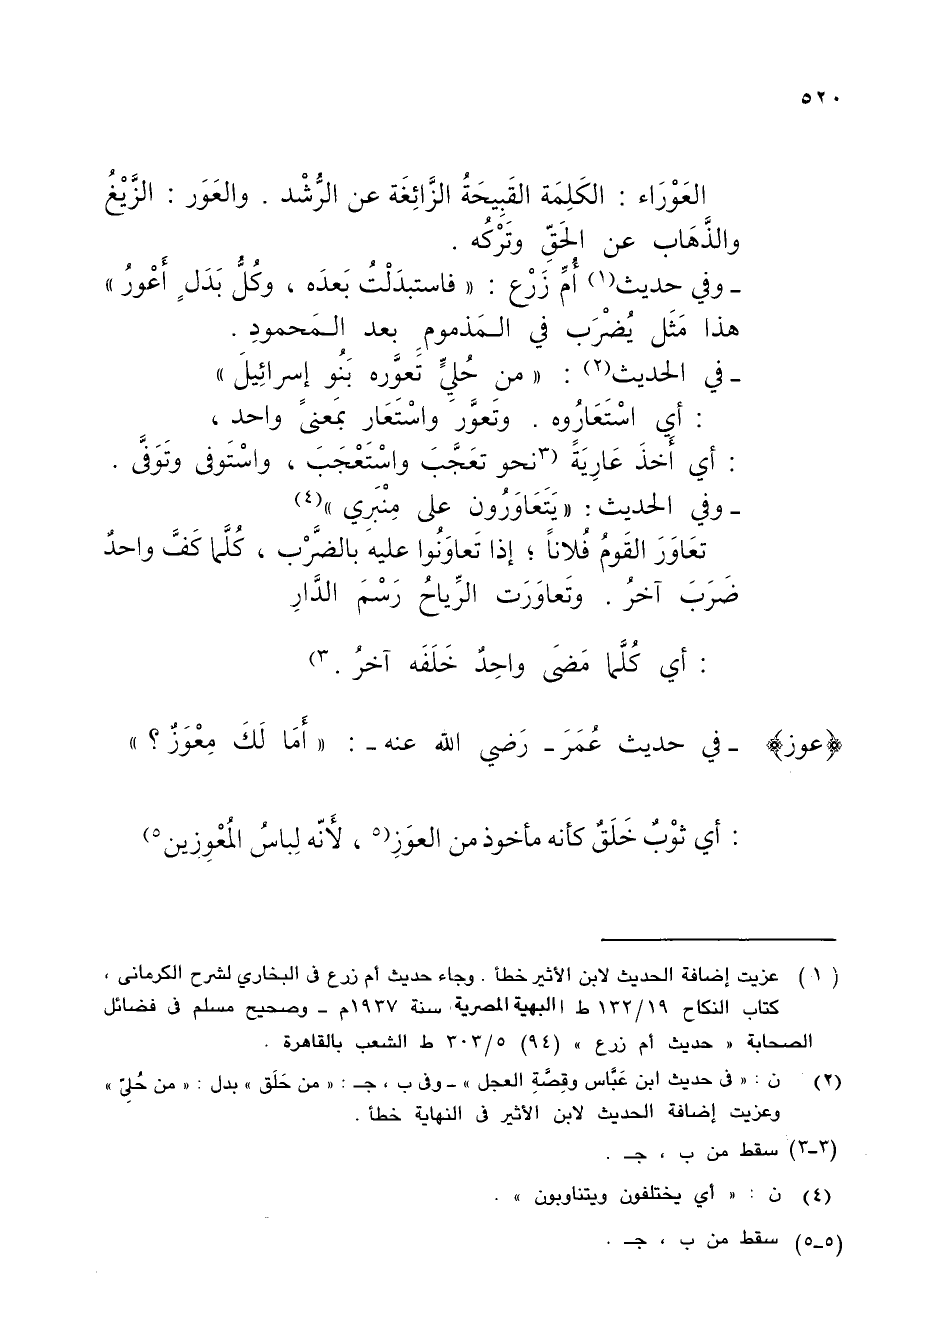 ٥٢٠
العَوْرَاء : الكَلِمَة القَبِيحَةُ الزَّائِغَة عن الرُّشْد . والعَوَر : الزَّيْغُ
والذَّهَاب عن الحَقِّ وتَرْكُه .
ـ وفي حديث(١) أُمِّ زَرْع : « فاستبدَلْتُ بَعدَه ، وكُلُّ بَدَلٍ أَعْورُ »
هذا مَثَل يُضْرَب في المَذموم بعد المَحمودِ .
ـ في الحديث(٢) : « من حُلِيٍّ تَعوَّره بَنُو إسرائِيلَ »
: أي اسْتَعارُوه . وتَعوَّرَ واسْتَعار بمَعنىً واحد ،
: أي أَخذَ عَارِيَةً (٣نحو تعَجَّبَ واسْتَعْجَبَ ، واسْتَوفى وتَوَفَّى .
ـ وفي الحديث : « يَتَعَاوَرُون على مِنْبَرِي »(٤)
تعَاوَرَ القَومُ فُلاناً ؛ إذا تعَاوَنُوا عليه بالضَّرْب ، كُلَّما كَفَّ واحدٌ
ضَرَبَ آخرُ . وتَعاوَرَت الرِّياحُ رَسْمَ الدَّارِ
: أي كُلَّما مَضَى واحِدٌ خَلَفَه آخرُ .٣)
﴿عوز﴾ ـ في حديث عُمَرَ ـ رَضي الله عنه ـ : « أَمَا لَكَ مِعْوَزٌ ؟ »
: أي ثَوْبٌ خَلَقٌ كأنه مأخوذ من العوَزِ(٥ ، لأَنّه لِباسُ المُعْوِزين٥)
( ١ ) عزيت إضافة الحديث لابن الأثير خطأ . وجاء حديث أم زرع فى البخاري لشرح الكرمانى ،
كتاب النكاح ١٣٢/١٩ ط البهية المصرية سنة ١٩٣٧م ـ وصحيح مسلم فى فضائل
الصحابة « حديث أم زرع » (٩٤) ٣٠٣/٥ ط الشعب بالقاهرة .
(٢) ن : « فى حديث ابن عَبَّاس وقِصَّة العجل » ـ وفى ب ، جـ : « من خَلَق » بدل : « من حُلِيّ »
وعزيت إضافة الحديث لابن الأثير فى النهاية خطأ .
(٣ـ٣) سقط من ب ، جـ .
(٤) ن : « أي يختلفون ويتناوبون » .
(٥ـ٥) سقط من ب ، جـ .